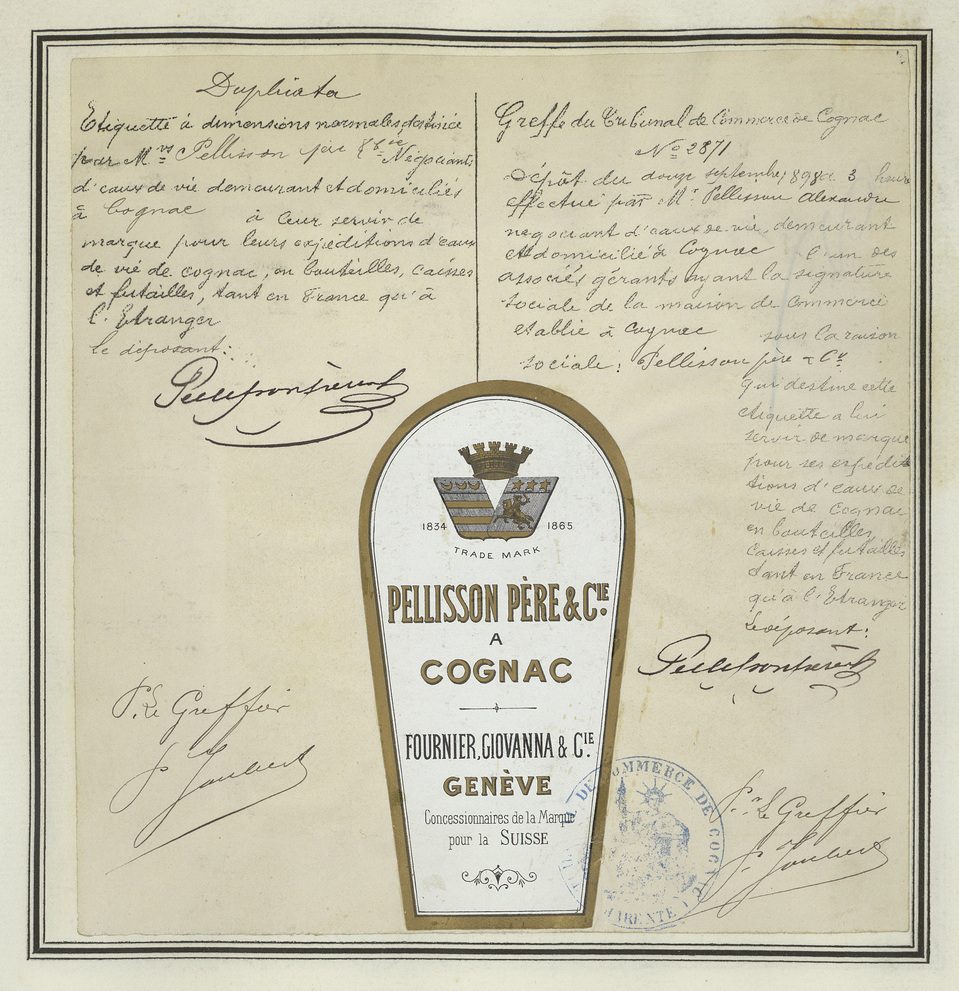 Duplicata
Etiquette à dimensions normales, destinée
par Mrs Pellisson père & Cie Négociants
d'eaux de vie demeurant et domiciliés
à Cognac à leur servir de
marque pour leurs expéditions d'eaux
de vie de cognac, en bouteilles, caisses
et futailles, tant en France qu'à
l'Etranger
le déposant:
P. Le Greffier
J. Joubert
Greffe du Tribunal de Commerce de Cognac
No 2871
Dépôt du douze septembre 1898 à 3 heures
effectué par Mr. Pellisson Alexandre
négociant d'eaux de vie, demeurant
et domicilié à Cognac l'un des
associés gérants ayant la signature
sociale de la maison de Commerce
etablie à Cognac sous la raison
sociale: Pellisson père & Cie
qui destine cette
étiquette a lui
servir de marque
pour ses expédi
tions d'eaux de
vie de Cognac
en bouteilles
caisses et futailles
tant en France
qu'à l'Etranger
Le déposant:
Pr Le Greffier
J. Joubert
1834 1865
TRADE MARK
PELLISSON PÈRE & CIE.
A
COGNAC
FOURNIER, GIOVANNA & CIE.
GENÈVE
Concessionnaires de la Marque
pour la SUISSE
DE COMMERCE DE COGNAC
CHARENTE